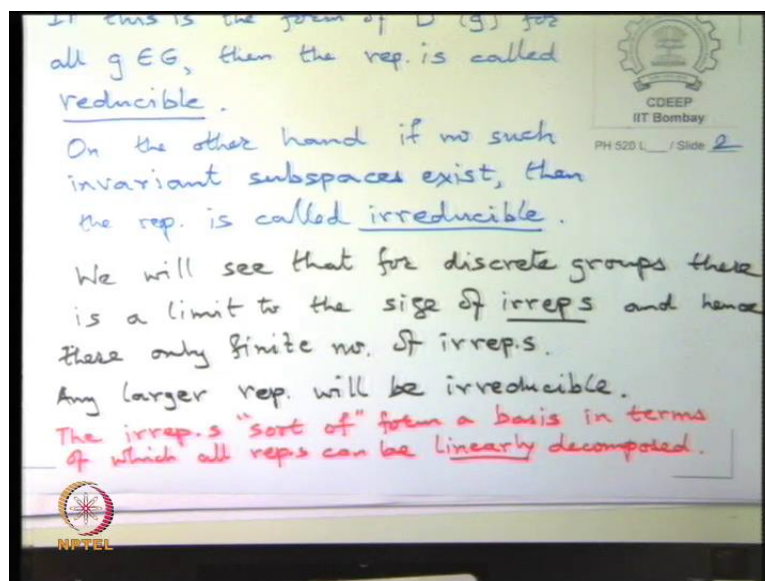 If this is the form of D (g) for
all g ∈ G, then the rep. is called
reducible.
CDEEP
IIT Bombay
PH 520 L___ / Slide 2
On the other hand if no such
invariant subspaces exist, then
the rep. is called irreducible.
We will see that for discrete groups there
is a limit to the size of irreps and hence
there only finite no. of irrep.s.
Any larger rep. will be irreducible.
The irrep.s "sort of" form a basis in terms
of which all rep.s can be linearly decomposed.
NPTEL